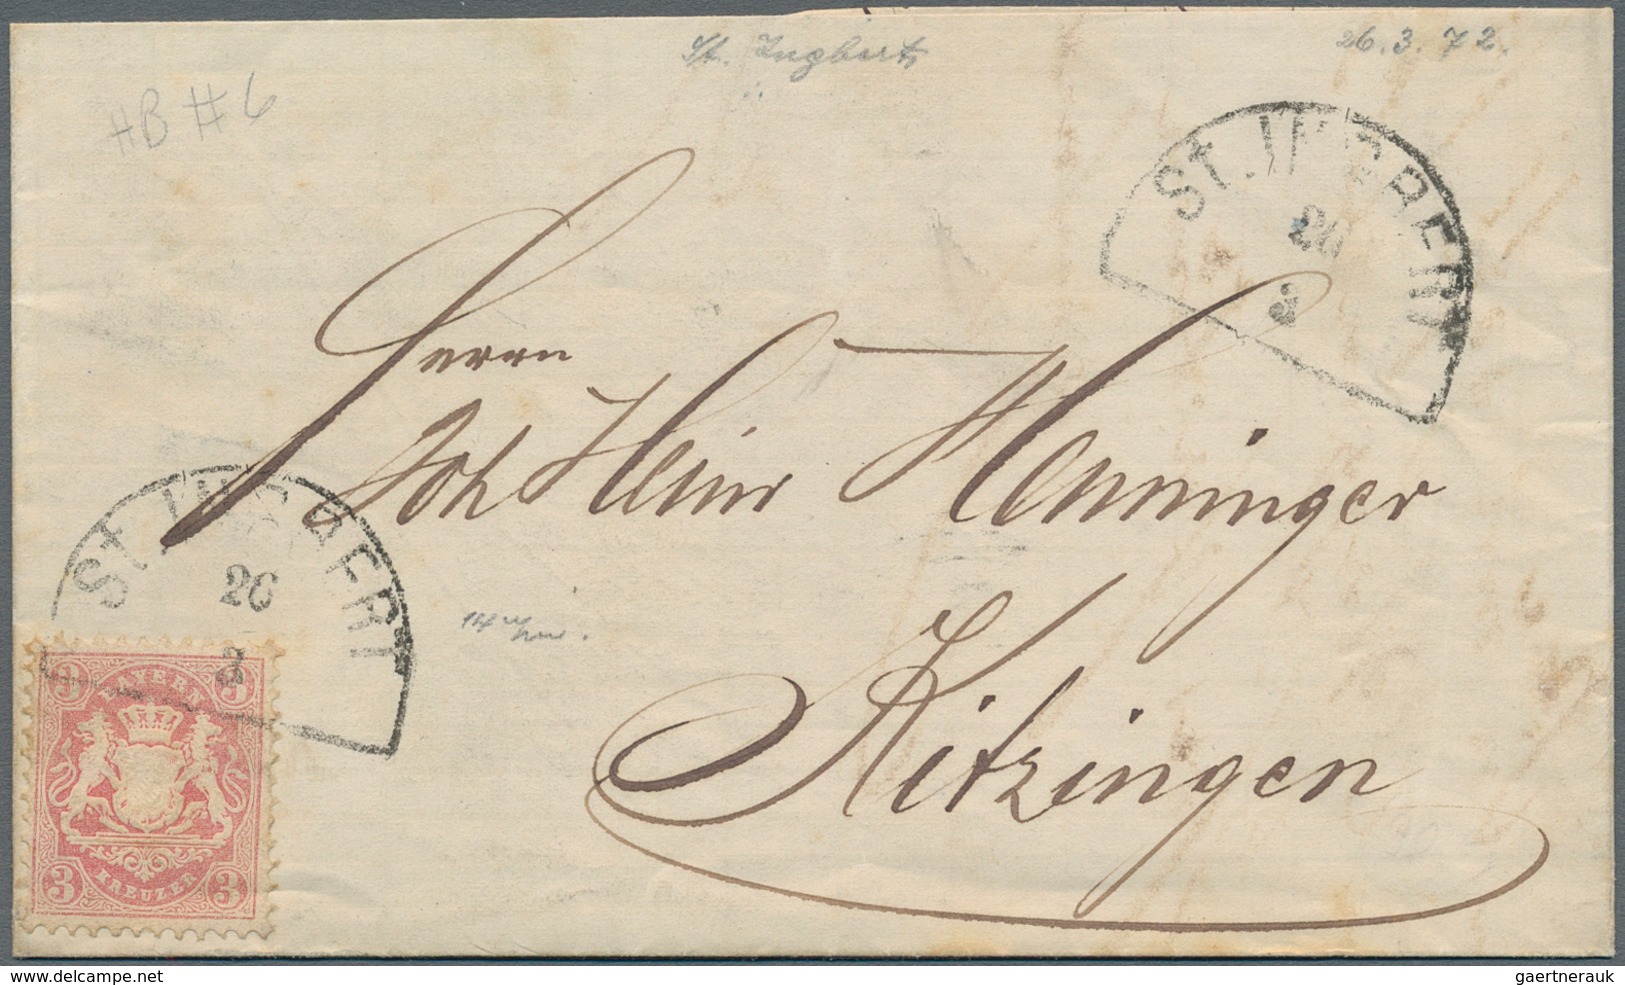 St. Ingbert
26.3.72.
HB #6
ST. INGBERT
26
3
Herrn
Joh Heinr Henninger
ST. INGBERT
26
3
Kitzingen
3 BAYERN 3
3 KREUZER 3
delcampe.net
gaertnerauk